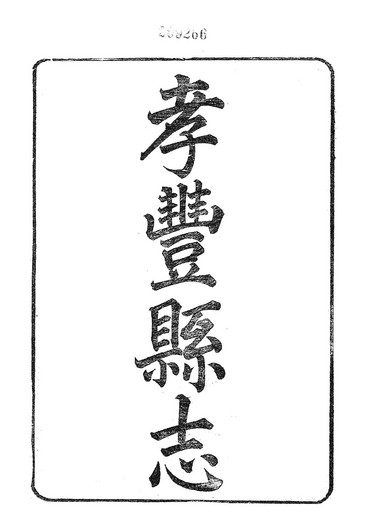 209206
孝豐縣志